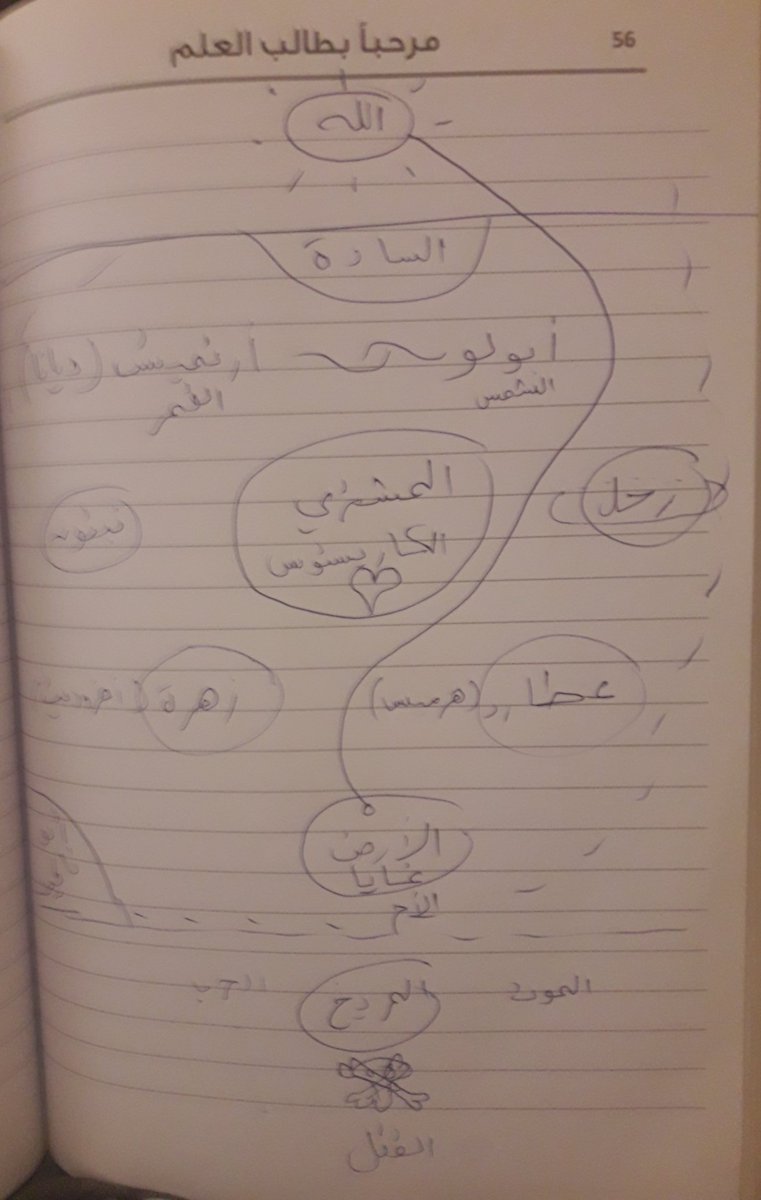 56 مرحباً بطالب العلم
الله
السادة
أبولو أرتميس (ديانا)
الشمس القمر
زحل المشتري نبتون
الكاريستوس
عطارد (هرمس) زهرة (أفروديت)
الأرض
غايا
الأم
الموت المريخ الحرب
القتل